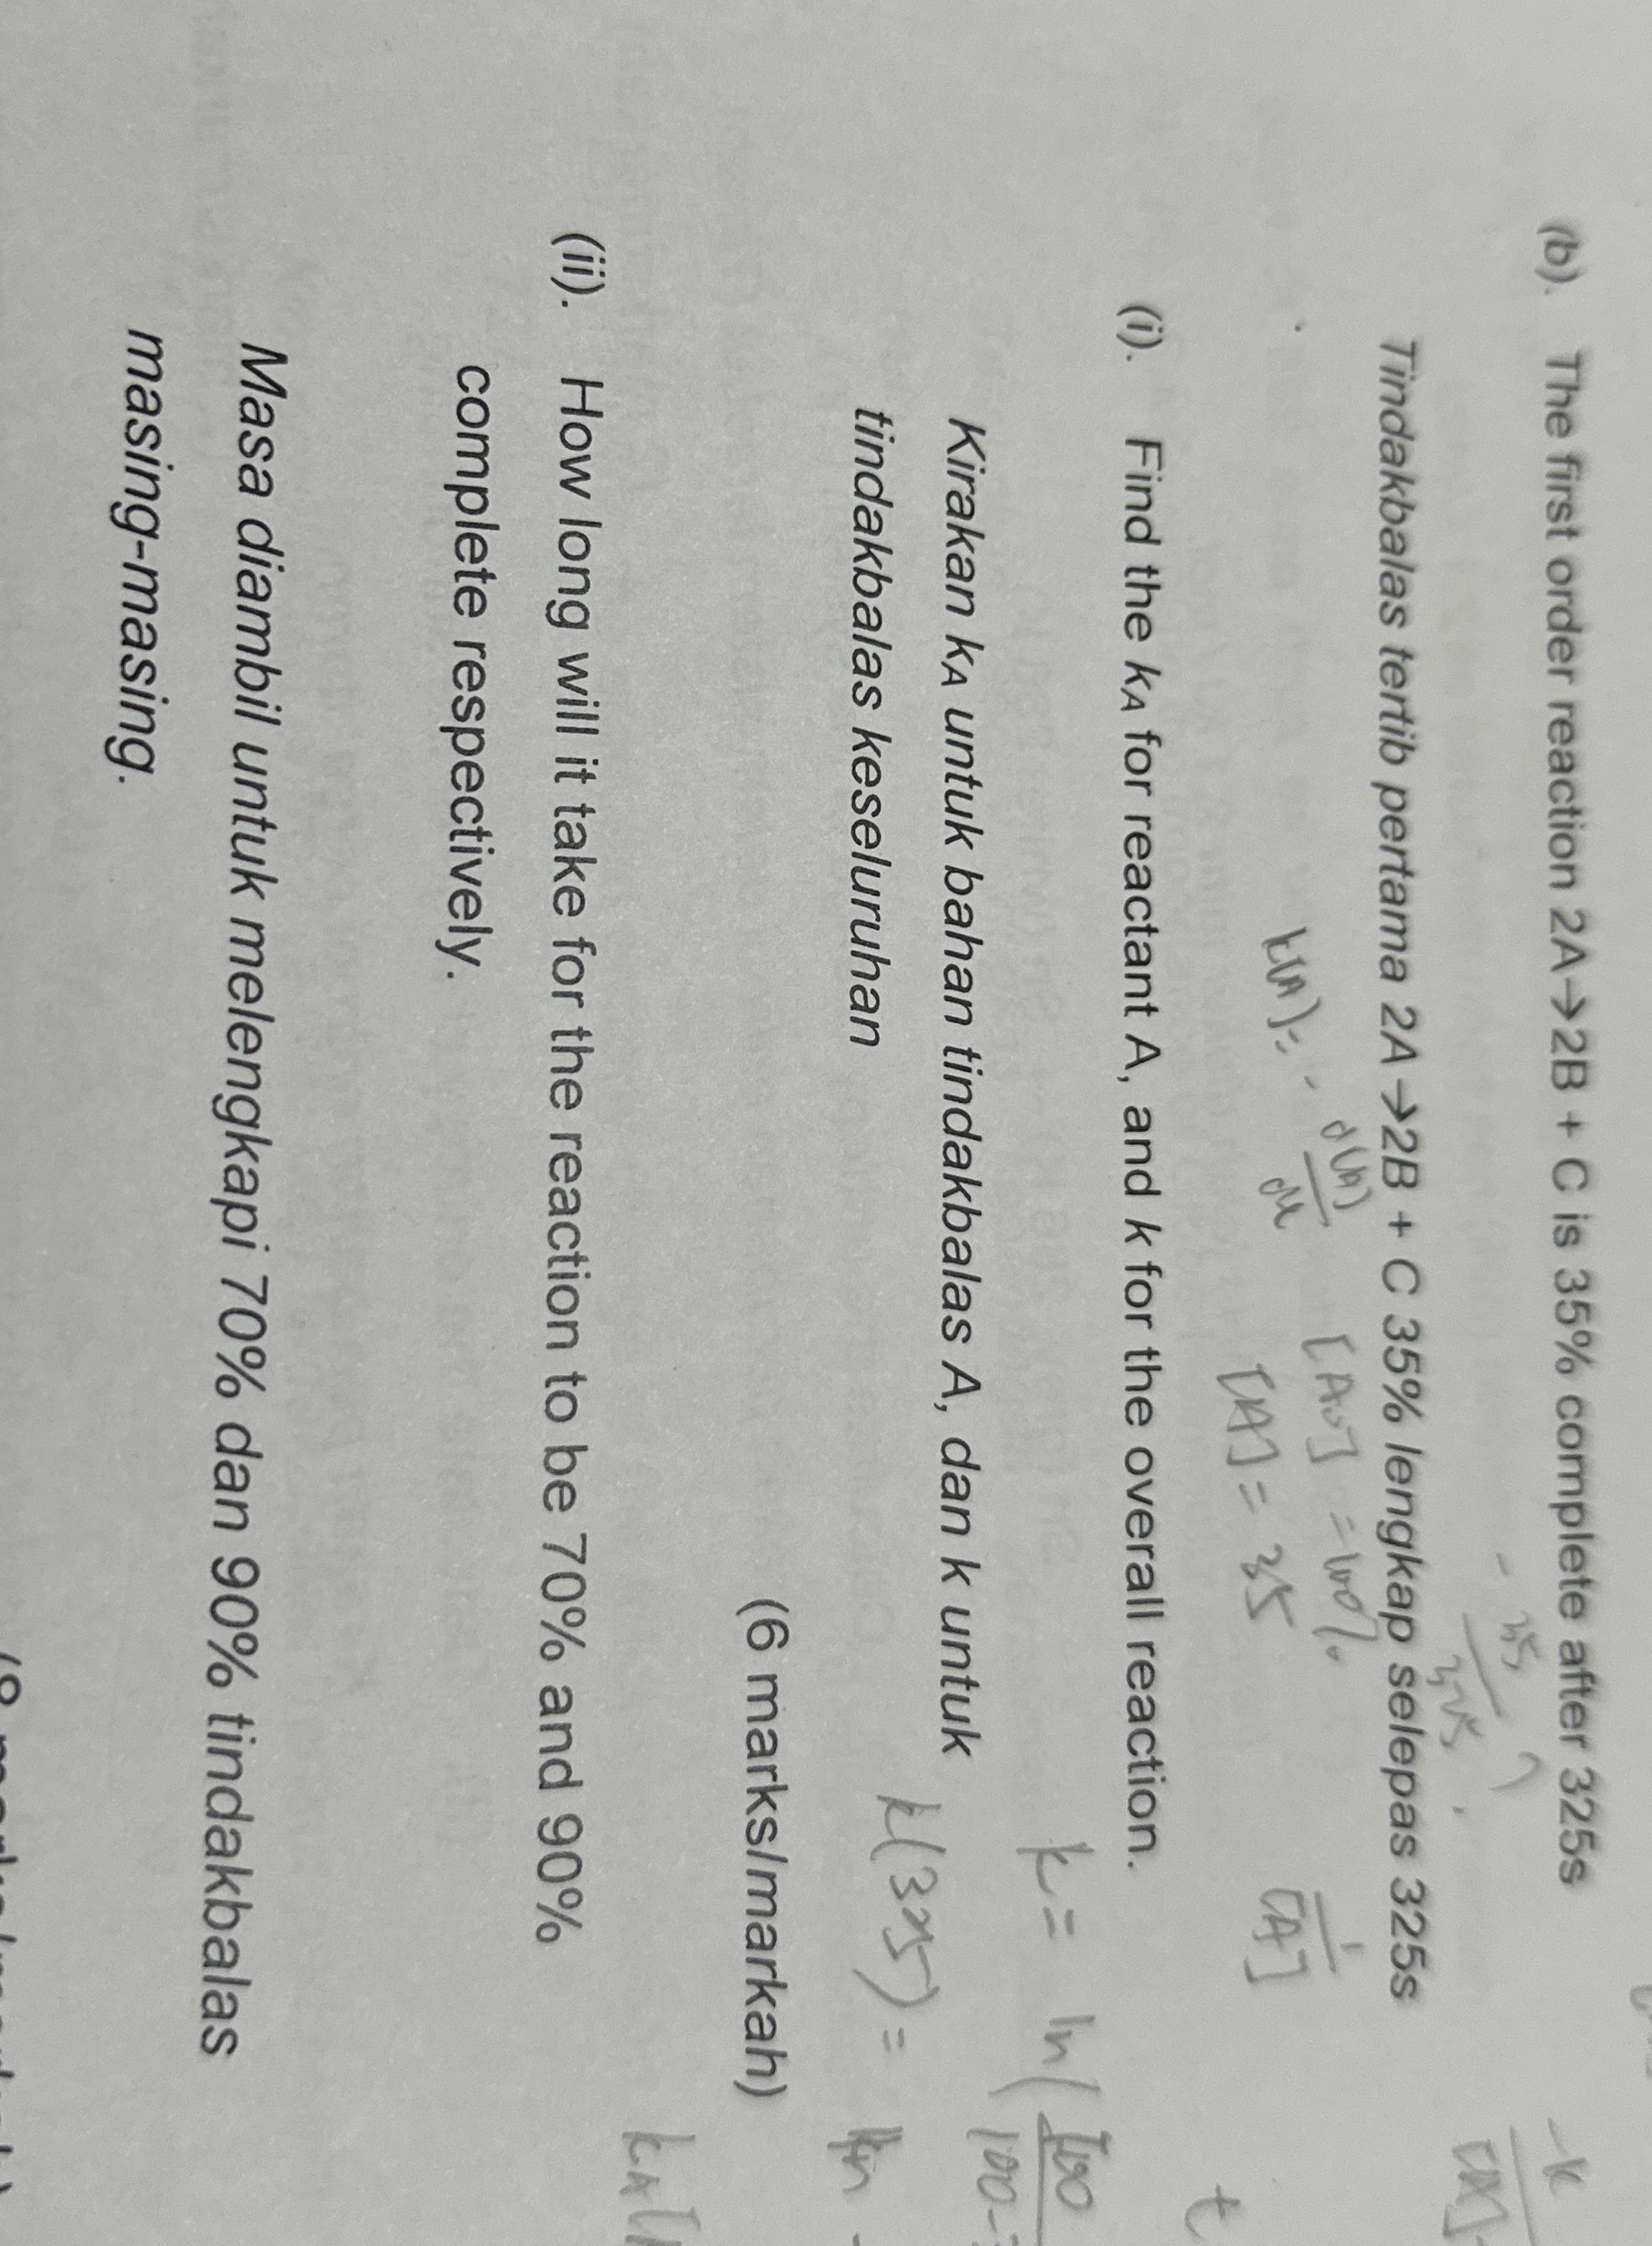 (b). The first order reaction 2A→2B + C is 35% complete after 325s
Tindakbalas tertib pertama 2A→2B + C 35% lengkap selepas 325s
[A₀] = 100%
[A] = 35
(i). Find the kA for reactant A, and k for the overall reaction.
Kirakan kA untuk bahan tindakbalas A, dan k untuk
tindakbalas keseluruhan
k = ln
(6 marks/markah)
(ii). How long will it take for the reaction to be 70% and 90%
complete respectively.
Masa diambil untuk melengkapi 70% dan 90% tindakbalas
masing-masing.